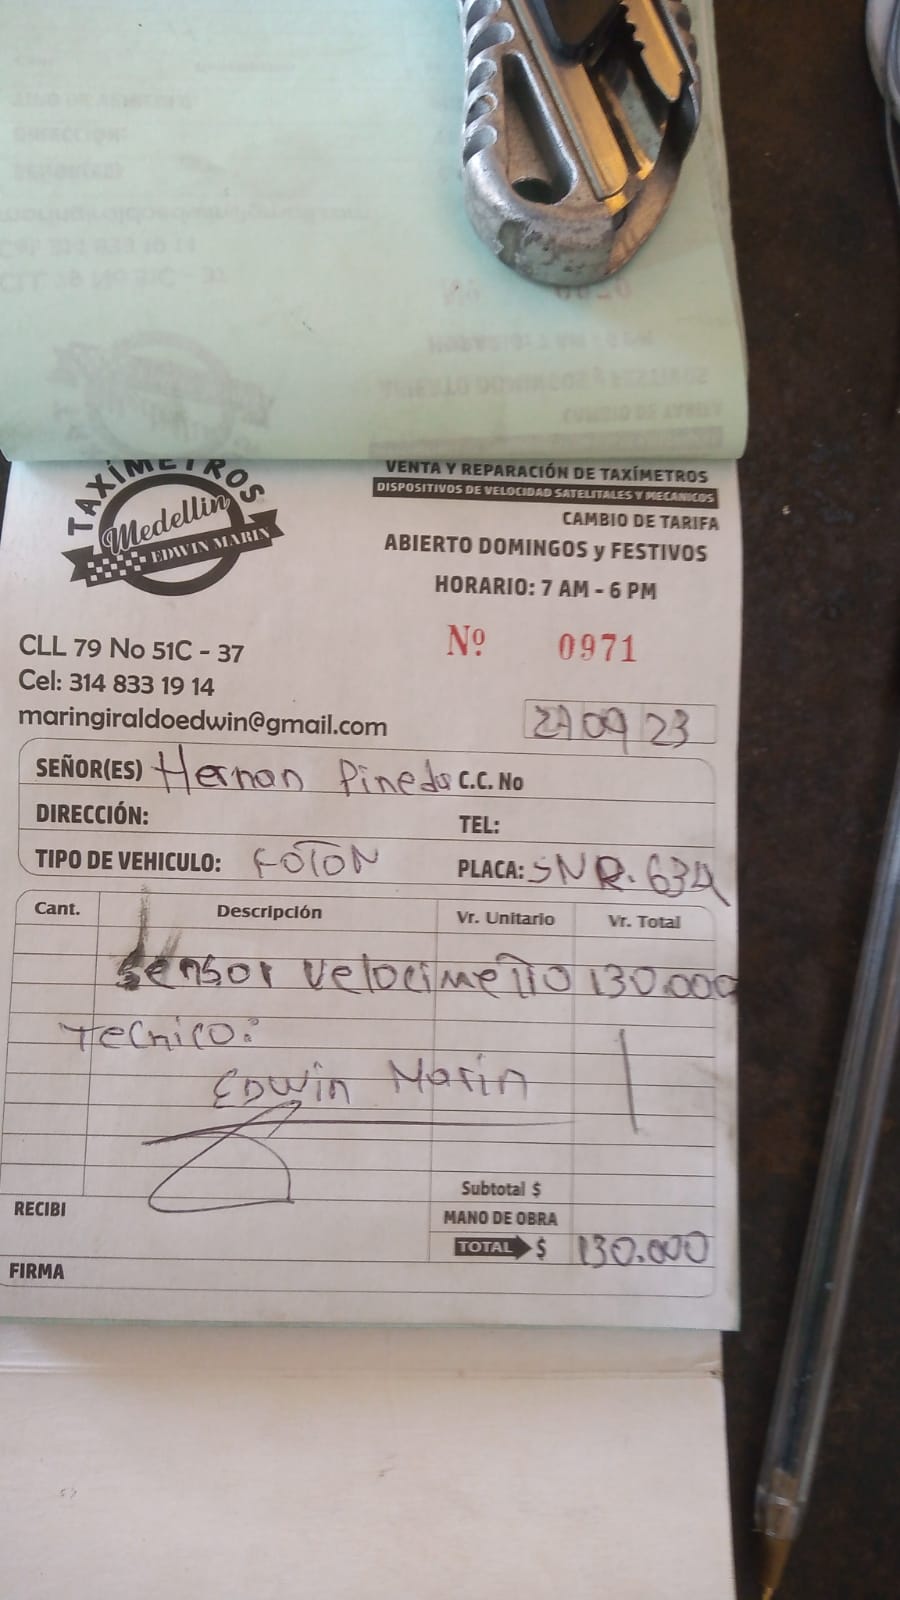 TAXÍMETROS
Medellin
EDWIN MARIN
VENTA Y REPARACIÓN DE TAXÍMETROS
DISPOSITIVOS DE VELOCIDAD SATELITALES Y MECANICOS
CAMBIO DE TARIFA
ABIERTO DOMINGOS y FESTIVOS
HORARIO: 7 AM - 6 PM
CLL 79 No 51C - 37
Nº 0971
Cel: 314 833 19 14
maringiraldoedwin@gmail.com
27 09 23
SEÑOR(ES) Hernan Pineda C.C. No
DIRECCIÓN: TEL:
TIPO DE VEHICULO: FOTON PLACA: SNR.634
Cant. Descripción Vr. Unitario Vr. Total
Sensor Velocimetro 130.000
Tecnico:
EDWin Marin
Subtotal $
RECIBI
MANO DE OBRA
TOTAL $ 130.000
FIRMA